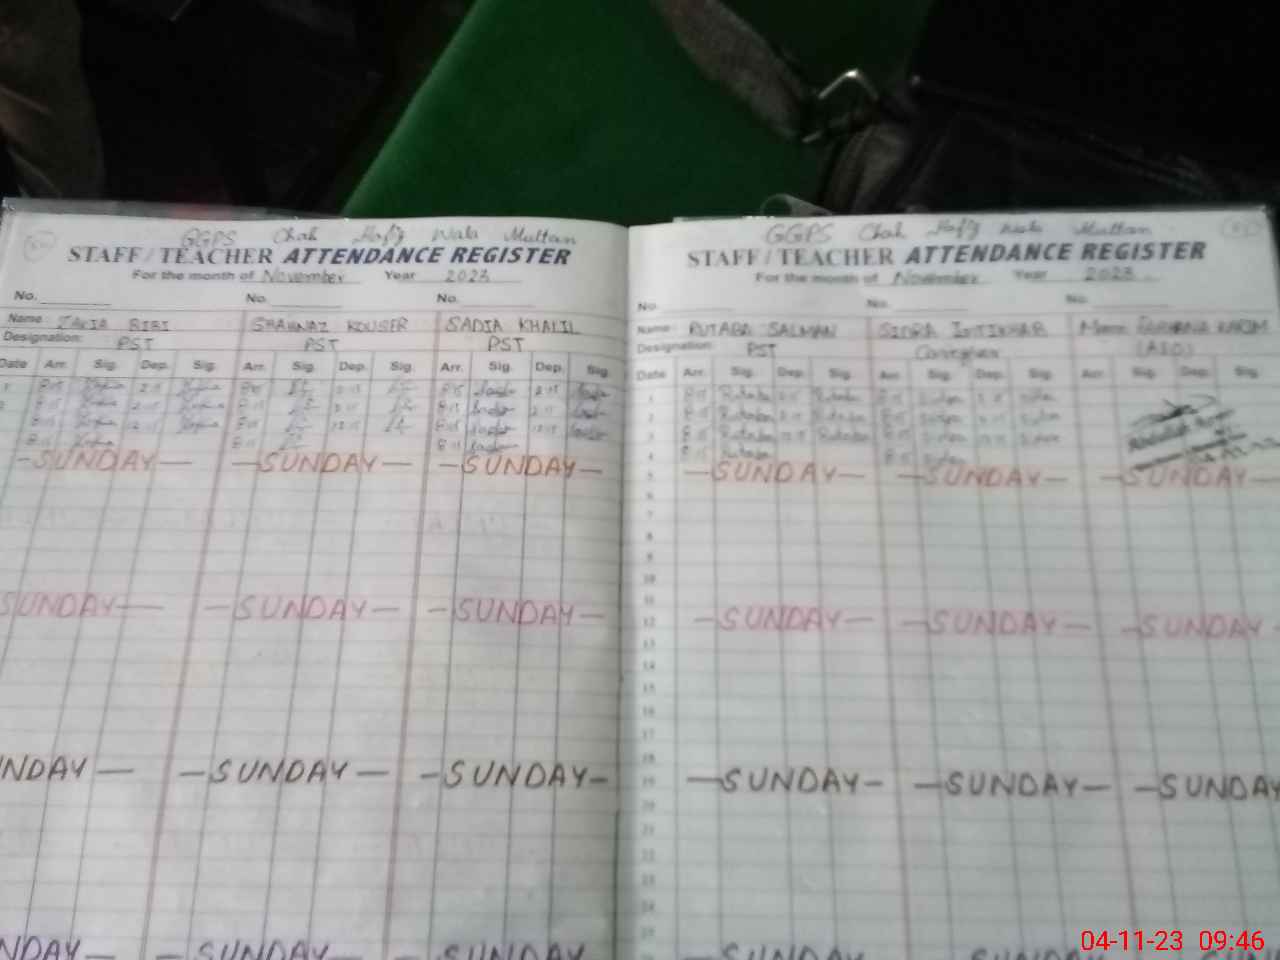 GGPS Chah Hafiz Wala Multan
STAFF / TEACHER ATTENDANCE REGISTER
For the month of November Year 2023
No. No. No.
Name: ZAKIA BIBI SHAHNAZ KOUSER SADIA KHALIL
Designation: PST PST PST
Date Arr. Sig. Dep. Sig. Arr. Sig. Dep. Sig. Arr. Sig. Dep. Sig.
8:15 2:15 8:15 2:15 8:15 Sadia 2:15 Sadia
8:15 2:15 8:15 2:15 8:15 Sadia 2:15 Sadia
8:15 12:15 8:15 12:15 8:15 Sadia 12:15 Sadia
8:15 8:15 8:15 Sadia
-SUNDAY- -SUNDAY- -SUNDAY-
SUNDAY- -SUNDAY- -SUNDAY-
NDAY- -SUNDAY- -SUNDAY-
NDAY- -SUNDAY- -SUNDAY-
GGPS Chah Hafiz Wala Multan
STAFF / TEACHER ATTENDANCE REGISTER
For the month of November Year 2023
No. No. No.
Name: RUTABA SALMAN SIDRA INTIKHAB FARHANA
Designation: PST Caregiver (AEO)
Date Arr. Sig. Dep. Sig. Arr. Sig. Dep. Sig. Arr. Sig. Dep. Sig.
1 8:15 Rutaba 2:15 Rutaba 8:15 2:15
2 8:15 Rutaba 2:15 Rutaba 8:15 2:15
3 8:15 Rutaba 12:15 Rutaba 8:15 12:15
4 8:15 Rutaba 8:15
5 -SUNDAY- -SUNDAY- -SUNDAY-
6
7
8
9
10
11
12 -SUNDAY- -SUNDAY- -SUNDAY-
13
14
15
16
17
18
19 -SUNDAY- -SUNDAY- -SUNDAY
20
21
22
23
24
25
-SUNDAY- -SUNDAY- SUN
04-11-23 09:46